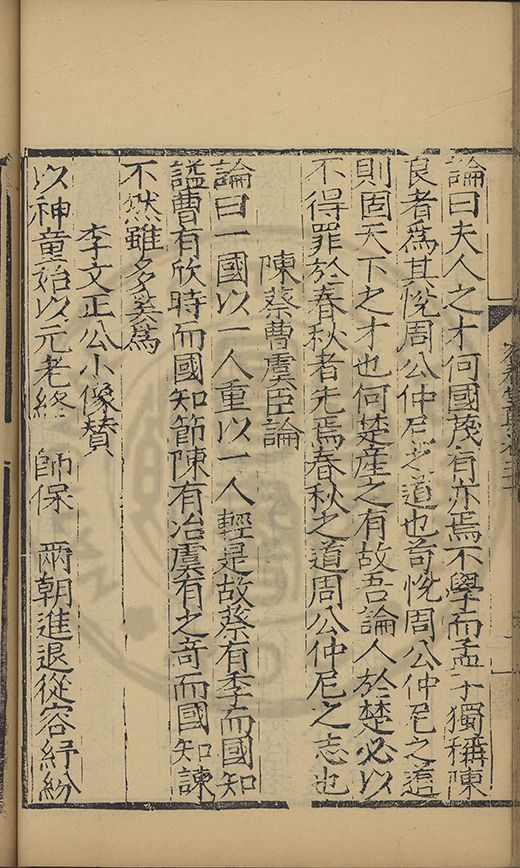 論曰夫人之才何國茂有亦焉不學而孟子獨稱陳
良者為其恱周公仲尼之道也苟恱周公仲尼之道
則固天下之才也何楚產之有故吾論人於楚必以
不得罪於春秋者先焉春秋之道周公仲尼之志也
陳蔡曹虞臣論
論曰一國以一人重以一人輕是故蔡有季而國知
諡曹有欣時而國知節陳有冶虞有之奇而國知諫
不然雖多奚為
李文正公小像贊
以神童始以元老終 師保 兩朝進退從容紓紛